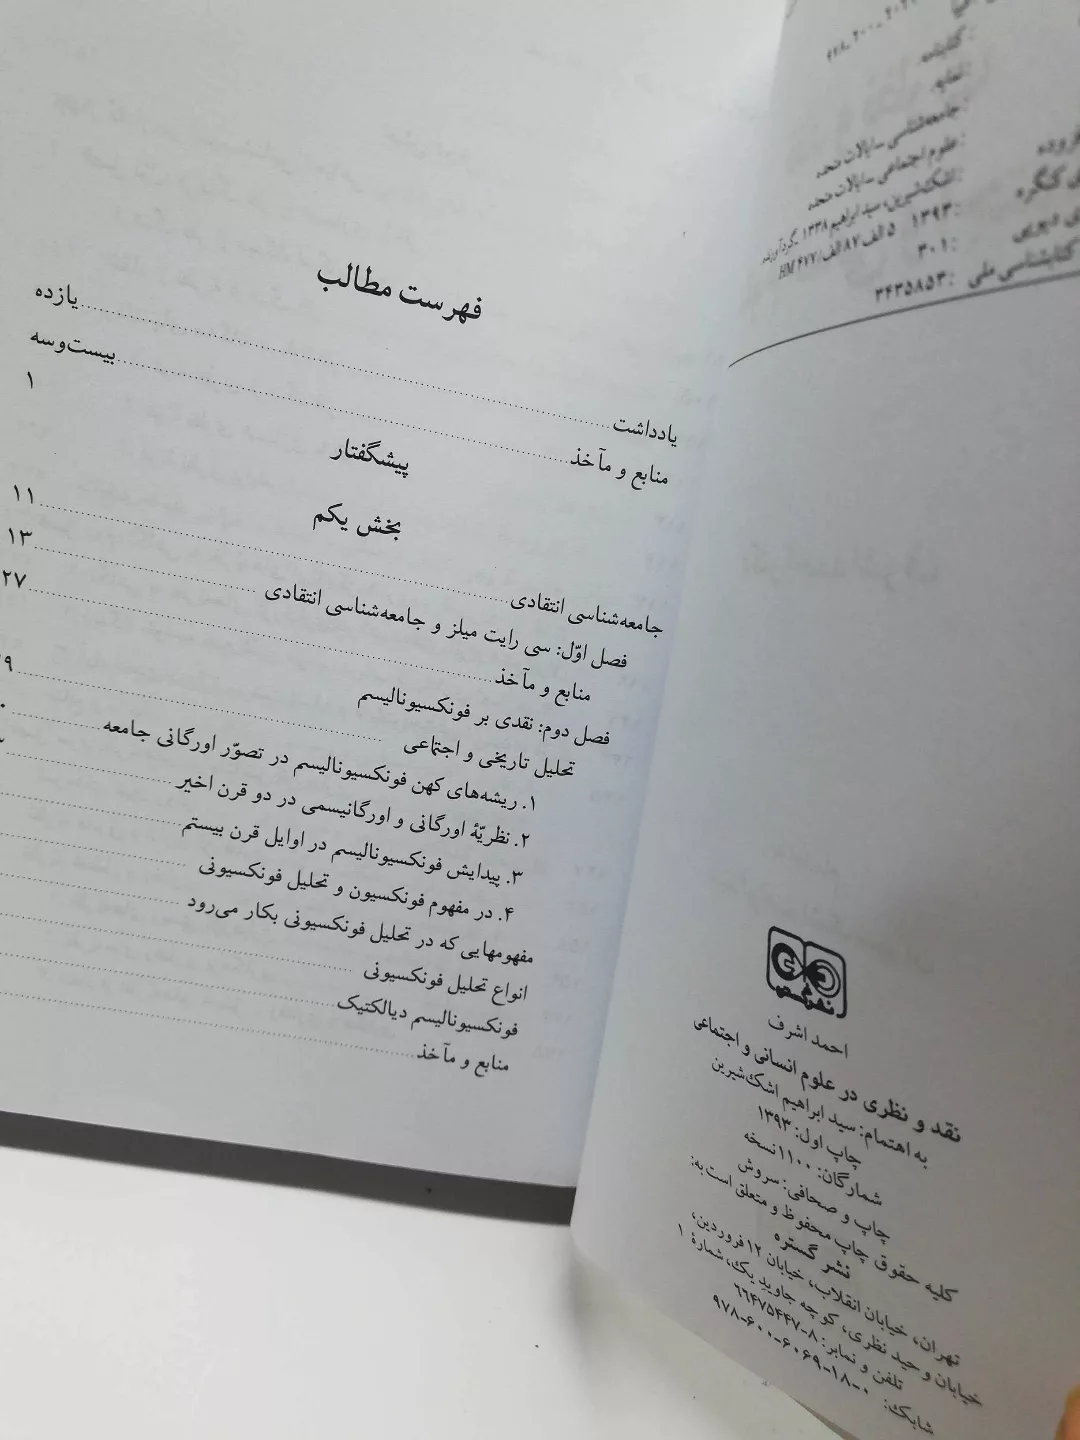 کتابنامه.
نمایه.
جامعه‌شناسی -- ایالات متحده
علوم اجتماعی -- ایالات متحده
اشک‌شیرین، سید ابراهیم ۱۳۳۸ -، گردآورنده
۱۳۹۳: ۵ الف ۸۷ الف/ HM ۴۷۷
۳۰۱:
کتابشناسی ملی: ۳۴۳۵۸۵۳
نشر گستره
احمد اشرف
نقد و نظری در علوم انسانی و اجتماعی
به اهتمام: سید ابراهیم اشک‌شیرین
چاپ اول: ۱۳۹۳
شمارگان: ۱۱۰۰ نسخه
چاپ و صحافی: سروش
کلیه حقوق چاپ محفوظ و متعلق است به:
نشر گستره
تهران، خیابان انقلاب، خیابان ۱۲ فروردین،
خیابان وحید نظری، کوچه جاوید یک، شمارۀ ۱
تلفن و نمابر: ۸-۶۶۴۷۵۴۴۷
شابک: ۹۷۸-۶۰۰-۶۰۶۹-۱۸-۰
فهرست مطالب
یادداشت ... یازده
منابع و مآخذ ... بیست‌وسه
پیشگفتار ۱
بخش یکم
جامعه‌شناسی انتقادی ... ۱۱
فصل اوّل: سی رایت میلز و جامعه‌شناسی انتقادی ... ۱۳
منابع و مآخذ ... ۲۷
فصل دوم: نقدی بر فونکسیونالیسم
تحلیل تاریخی و اجتماعی
۱. ریشه‌های کهن فونکسیونالیسم در تصوّر اورگانی جامعه
۲. نظریّۀ اورگانی و اورگانیسمی در دو قرن اخیر
۳. پیدایش فونکسیونالیسم در اوایل قرن بیستم
۴. در مفهوم فونکسیون و تحلیل فونکسیونی
مفهومهایی که در تحلیل فونکسیونی بکار می‌رود
انواع تحلیل فونکسیونی
فونکسیونالیسم دیالکتیک
منابع و مآخذ